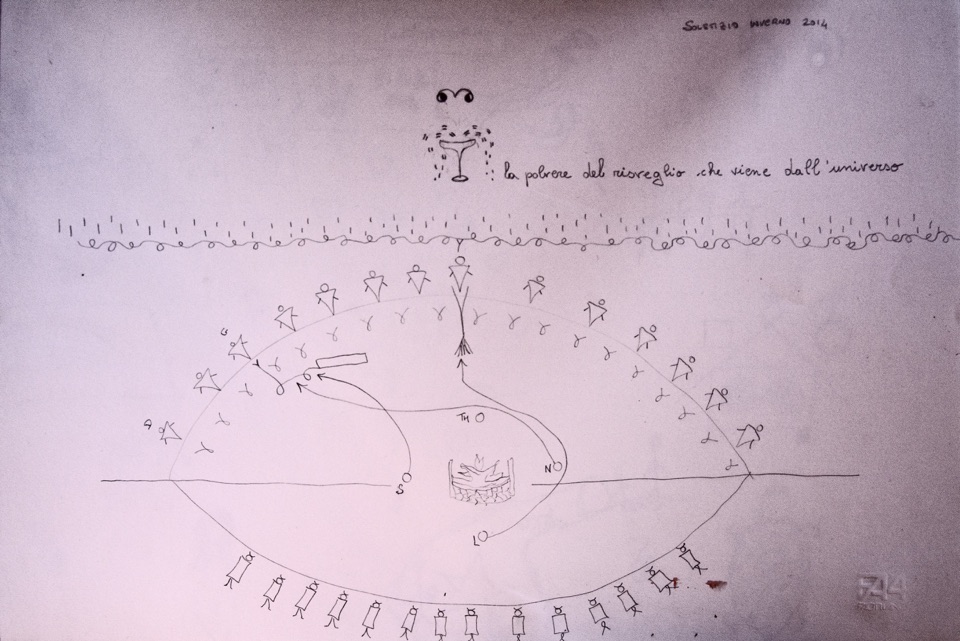 SOLSTIZIO INVERNO 2014
la polvere del risveglio che viene dall'universo
TH
N
S
L